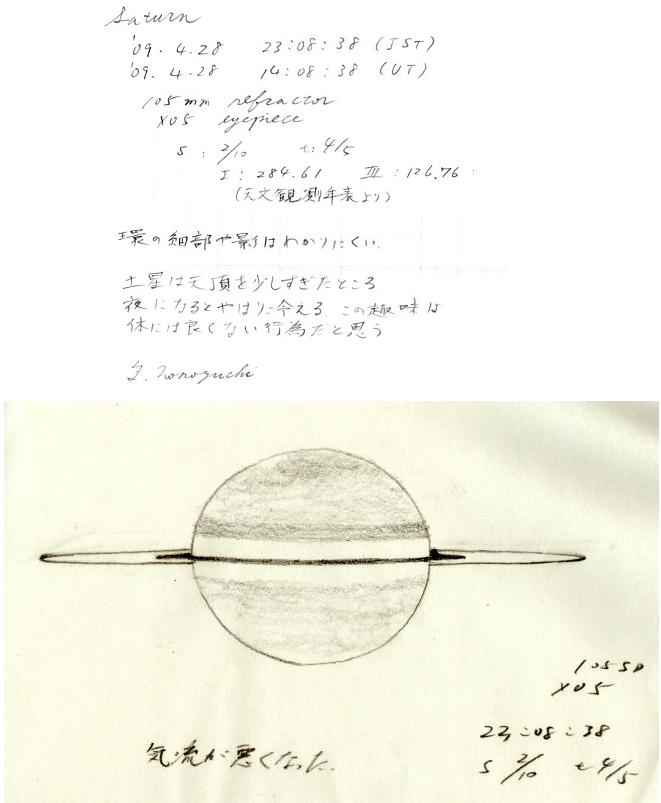 Saturn
'09. 4.28 23:08:38 (JST)
'09. 4.28 14:08:38 (UT)
105mm refractor
XO5 eyepiece
S : 2/10 t: 4/5
I : 284.61 III : 126.76
(天文観測年表より)
環の細部や影はわかりにくい.
土星は天頂を少しすぎたところ
夜になるとやはり冷える. この趣味は
体には良くない行為だと思う
105SD
XO5
23:08:38
S 2/10 t 4/5
気流が悪くなった.